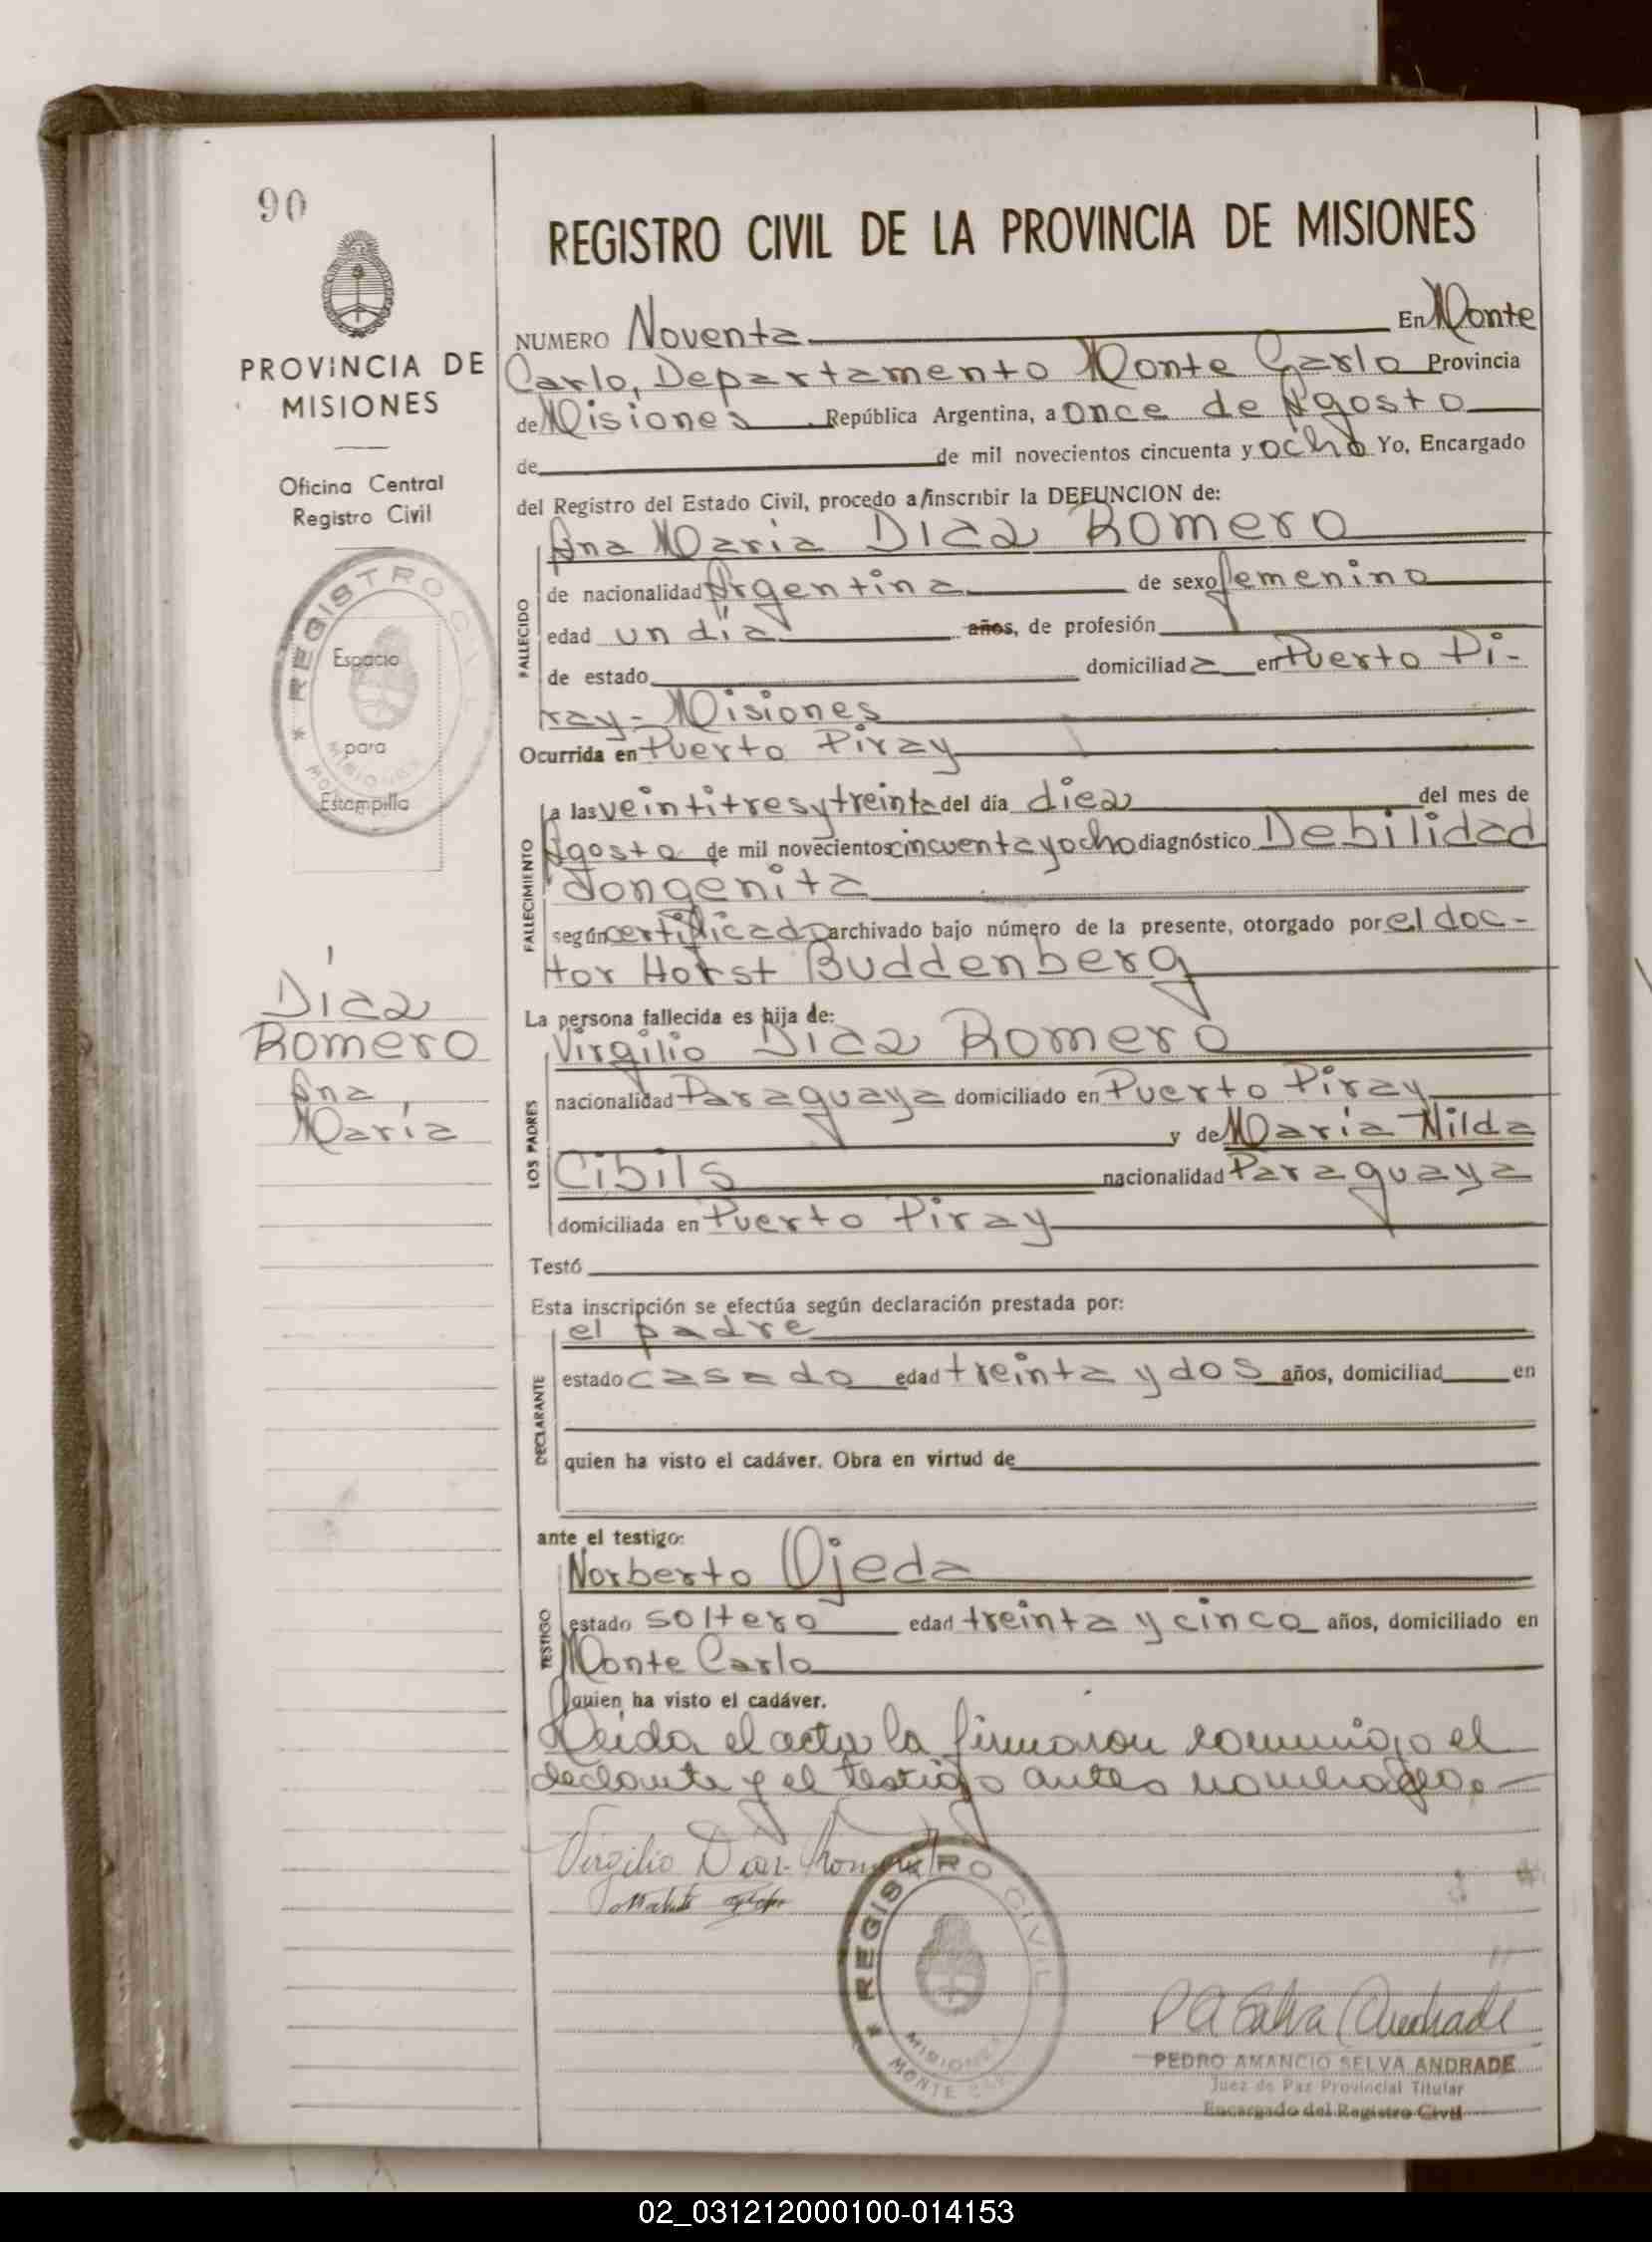 90
PROVINCIA DE
MISIONES
Oficina Central
Registro Civil
REGISTRO CIVIL
Espacio
para
Estampilla
Diaz
Romero
Ana
María
REGISTRO CIVIL DE LA PROVINCIA DE MISIONES
NUMERO Noventa En Monte
Carlo, Departamento Monte Carlo Provincia
de Misiones República Argentina, a once de Agosto
de de mil novecientos cincuenta y ocho Yo, Encargado
del Registro del Estado Civil, procedo a/inscribir la DEFUNCION de:
Ana María Diaz Romero
FALLECIDO
de nacionalidad Argentina de sexo femenino
edad un día años, de profesión
de estado domiciliada en Puerto Pi-
ray - Misiones
Ocurrida en Puerto Piray
FALLECIMIENTO
a las veintitres y treinta del día diez del mes de
Agosto de mil novecientos cincuenta y ocho diagnóstico Debilidad
Congenita
según certificado archivado bajo número de la presente, otorgado por el doc-
tor Horst Buddenberg
La persona fallecida es hija de:
LOS PADRES
Virgilio Diaz Romero
nacionalidad Paraguaya domiciliado en Puerto Piray
y de María Nilda
Cibils nacionalidad Paraguaya
domiciliada en Puerto Piray
Testó
Esta inscripción se efectúa según declaración prestada por:
DECLARANTE
el padre
estado casado edad treinta y dos años, domiciliad en
quien ha visto el cadáver. Obra en virtud de
ante el testigo:
TESTIGO
Norberto Ojeda
estado soltero edad treinta y cinco años, domiciliado en
Monte Carlo
quien ha visto el cadáver.
Leida el acta la firmaron conmigo el
declarante y el testigo antes nombrado.-
Virgilio Diaz Romero
REGISTRO CIVIL
MISIONES
MONTE CARLO
PEDRO AMANCIO SELVA ANDRADE
Juez de Paz Provincial Titular
Encargado del Registro Civil
02_031212000100-014153